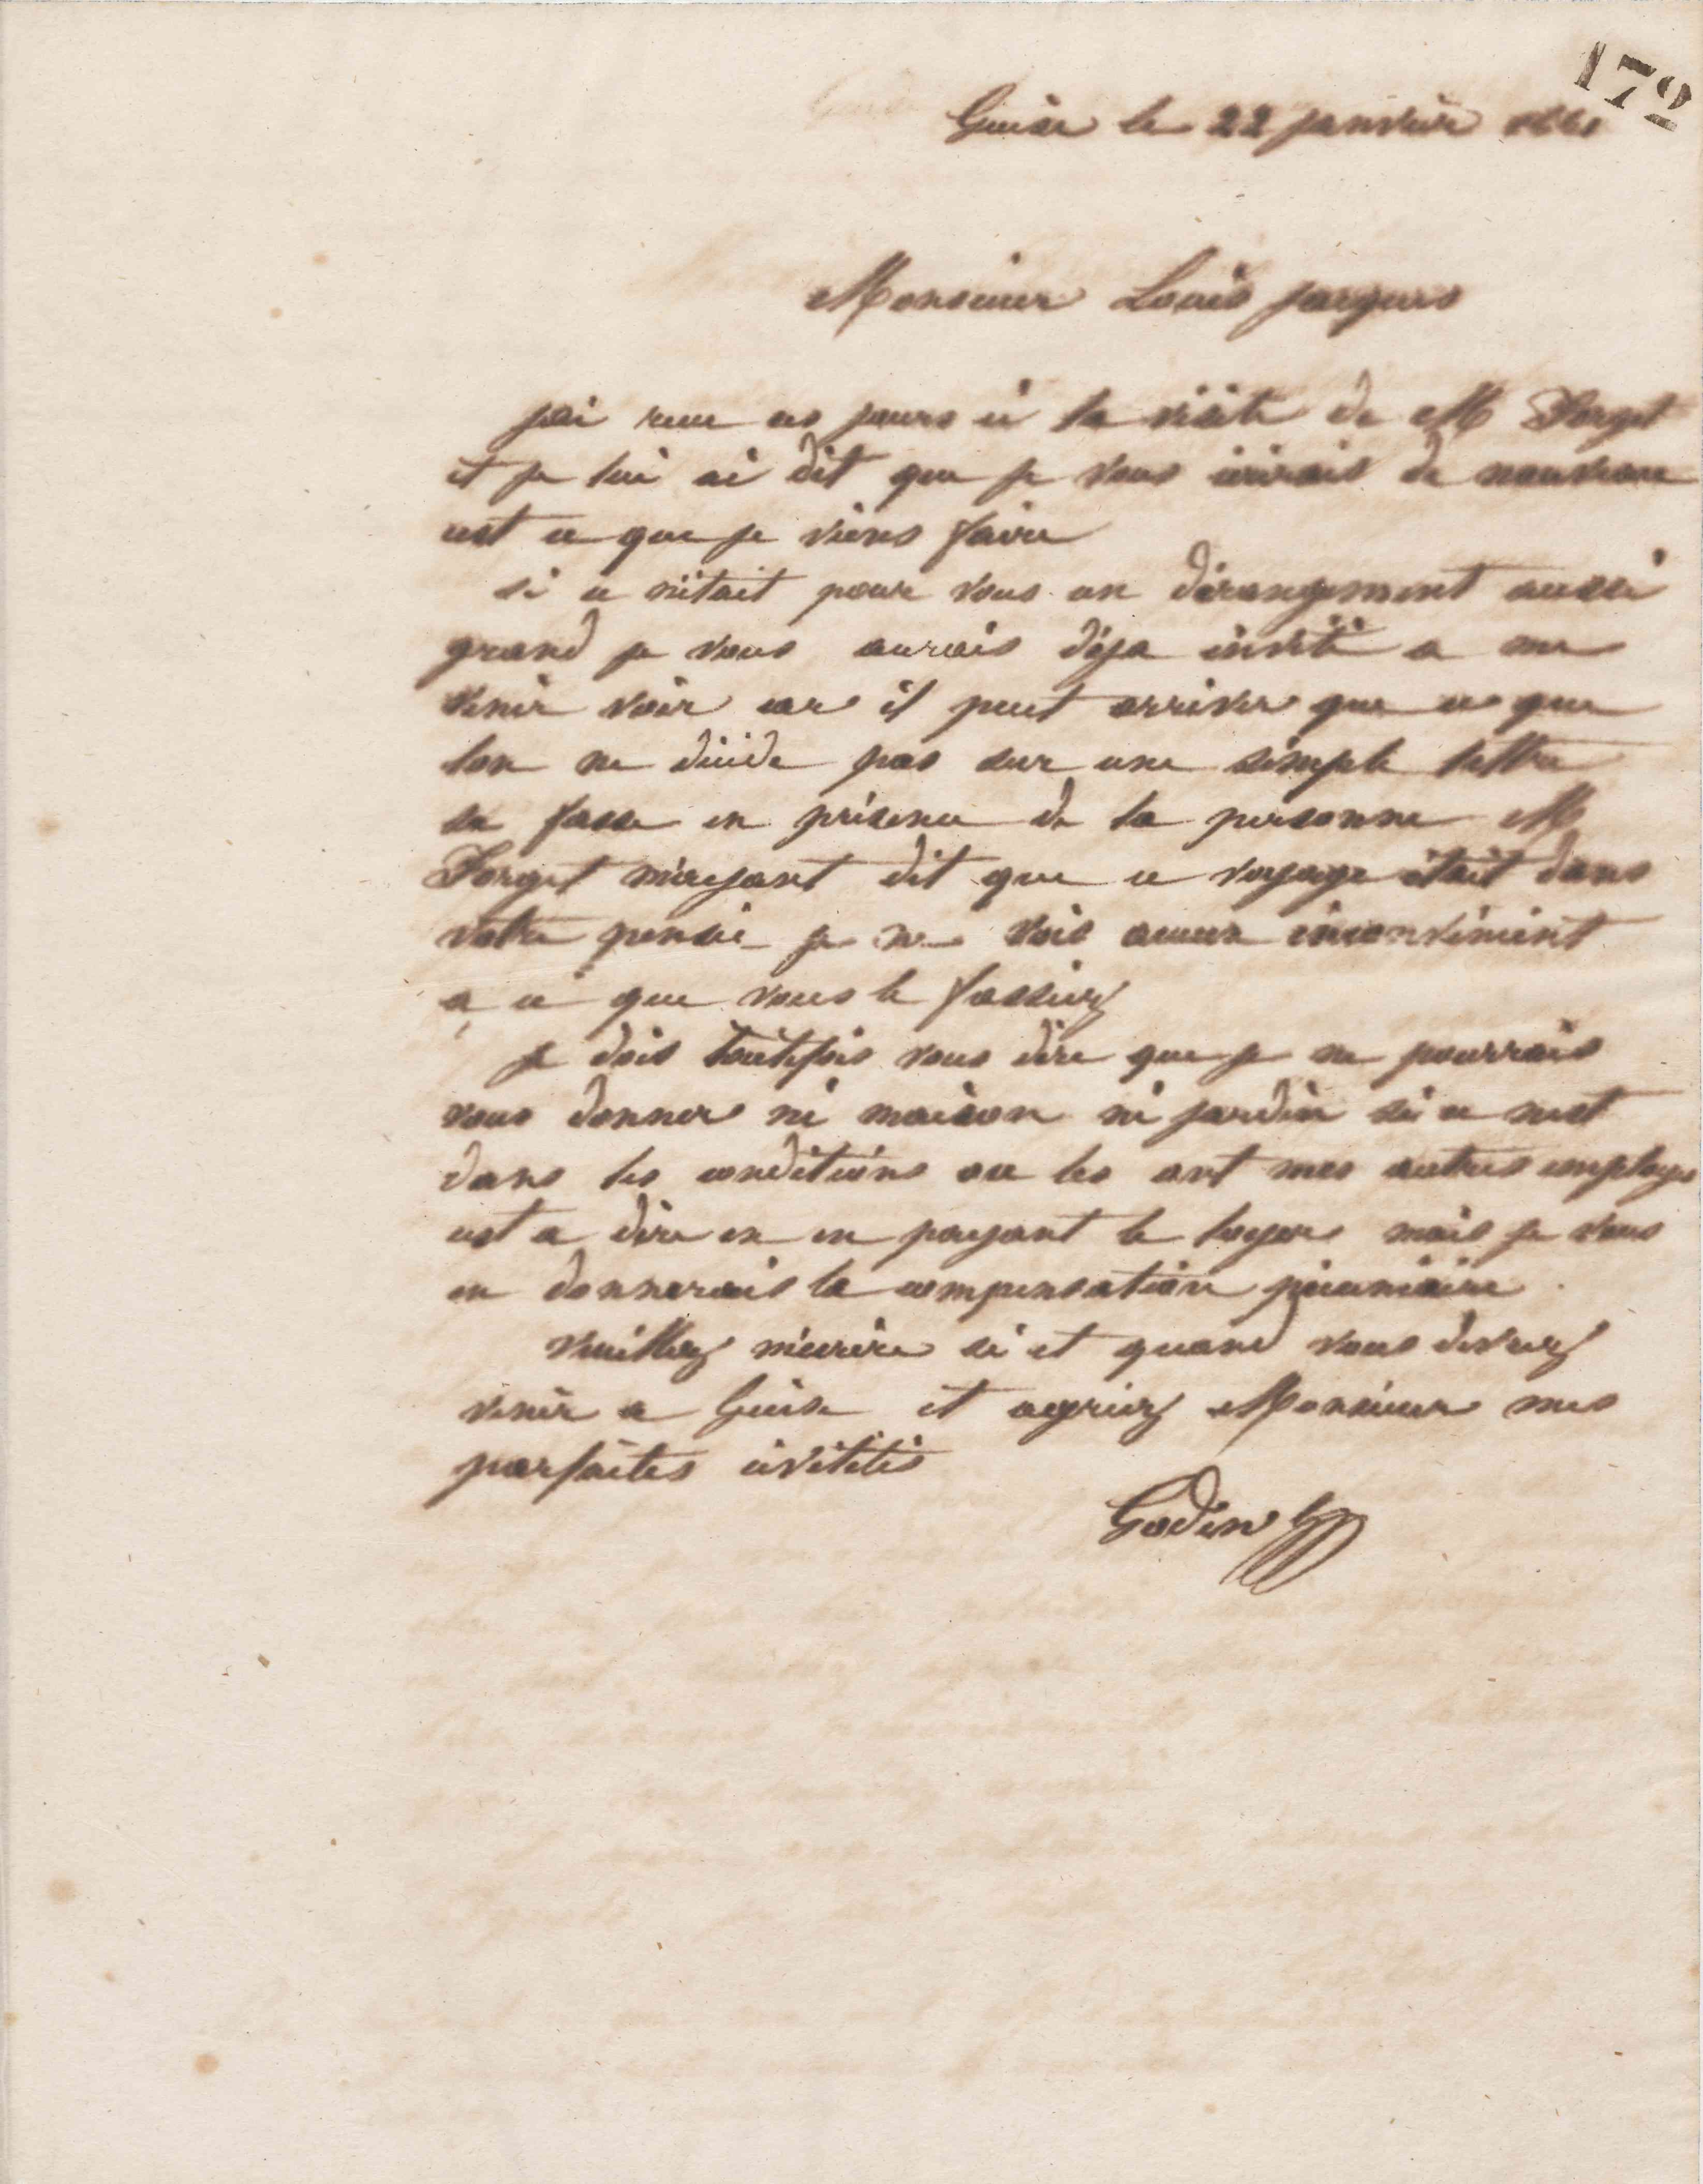 172
Guise le 22 janvier
Monsieur Louis Jacques
jai recu ces jours ci la visite de M Forget
et je lui ai dit que je vous écrirais de nouveau
cest ce que je viens faire
si ce nétait pour vous un dérangement aussi
grand je vous aurais déja invité a me
venir voir car il peut arriver que ce que
lon ne décide pas sur une simple lettre
se fasse en présence de la personne M
Forget m'ayant dit que ce voyage était dans
votre pensée je ne vois aucun inconvénient
a ce que vous le fassiez
je dois toutefois vous dire que je ne pourrais
vous donner ni maison ni jardin si ce nest
dans les conditions ou les ont mes autres employés
cest a dire en en payant le loyer mais je vous
en donnerais la compensation pécuniaire
veuillez m'écrire si et quand vous devrez
venir a Guise et agréez Monsieur mes
parfaites civilités
Godin